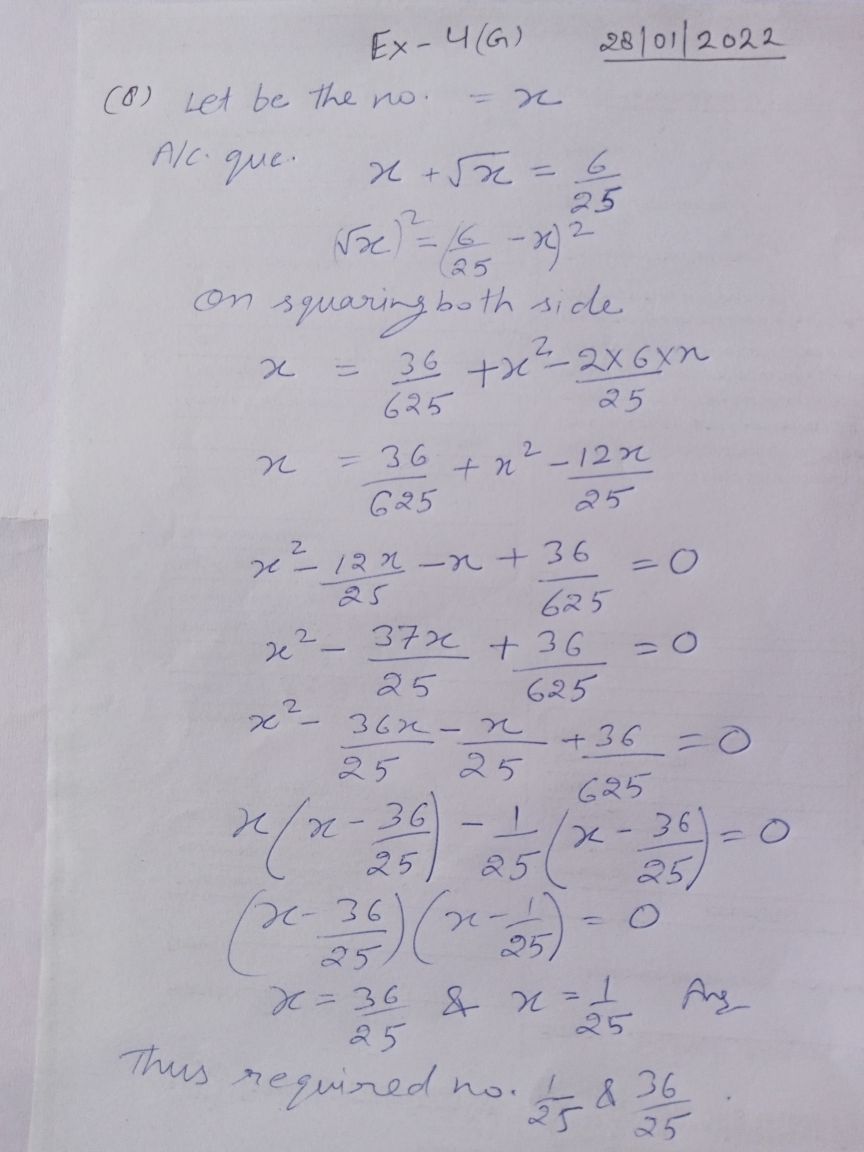 Ex-4(G) 28/01/2022
(8) Let be the no. = x
A/c. que. x + √x = 6/25
(√x)² = (6/25 - x)²
On squaring both side
x = 36/625 + x² - 2×6×x/25
x = 36/625 + x² - 12x/25
x² - 12x/25 - x + 36/625 = 0
x² - 37x/25 + 36/625 = 0
x² - 36x/25 - x/25 + 36/625 = 0
x(x - 36/25) - 1/25(x - 36/25) = 0
(x - 36/25)(x - 1/25) = 0
x = 36/25 & x = 1/25 Ans
Thus required no. 1/25 & 36/25.